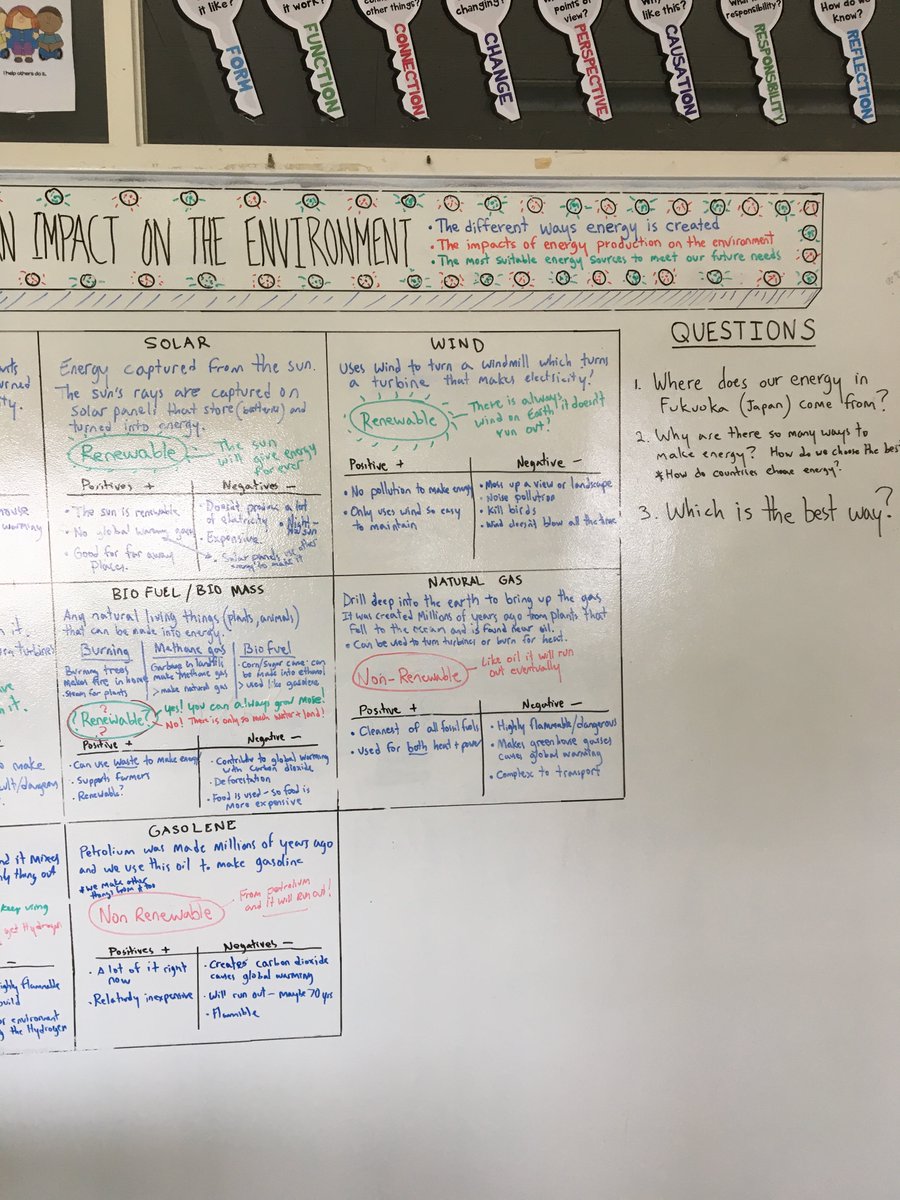 I help others do it.
it like?
FORM
it work?
FUNCTION
other things?
CONNECTION
changing?
CHANGE
points of
view?
PERSPECTIVE
like this?
CAUSATION
responsibility?
RESPONSIBILITY
How do we
know?
REFLECTION
N IMPACT ON THE ENVIRONMENT
• The different ways energy is created
• The impacts of energy production on the environment
• The most suitable energy sources to meet our future needs
SOLAR
Energy captured from the sun.
The sun's rays are captured on
solar panels that store (batteries) and
turned into energy.
Renewable
The sun
will give energy
forever
Positives +
• The sun is renewable
• No global warming gases
• Good for far away
places.
Negatives -
• Doesn't produce a lot
of electricity
• Night - no sun
• Expensive
• Solar panels use other
energy to make it
WIND
Uses wind to turn a windmill which turns
a turbine that makes electricity!
Renewable
There is always
wind on Earth, it doesn't
run out?
Positive +
• No pollution to make energy
• Only uses wind so easy
to maintain
Negative -
• Mess up a view or landscape
• Noise pollution
• Kill birds
• Wind doesn't blow all the time
QUESTIONS
1. Where does our energy in
Fukuoka (Japan) come from?
2. Why are there so many ways to
make energy? How do we choose the best
* How do countries choose energy?
3. Which is the best way?
BIO FUEL / BIO MASS
Any natural living things (plants, animals)
that can be made into energy.
Burning
Burning trees
Makes fire in home
Steam for plants
Methane gas
Garbage in landfills
make methane gas
> make natural gas
Bio Fuel
• Corn/sugar cane can
be made into ethanol
> used like gasolene
?
Renewable?
?
yes! you can always grow more!
No! There is only so much water + land!
Positive +
• Can use waste to make energy
• Supports farmers
• Renewable?
Negative -
• Contributes to global warming
with carbon dioxide
• Deforestation
• Food is used - so food is
more expensive
NATURAL GAS
Drill deep into the earth to bring up the gas
It was created Millions of years ago from plants that
fall to the ocean and is found near oil.
• Can be used to turn turbines or burn for heat.
Non-Renewable
Like oil it will run
out eventually
Positive +
• Cleanest of all fossil fuels
• Used for both heat + power
Negative -
• Highly flammable/dangerous
• Makes greenhouse gasses
causes global warming
• Complex to transport
GASOLENE
Petrolium was made Millions of years ago
and we use this oil to make gasoline
* We make other
things from it too
Non Renewable
From petrolium
and it will run out!
Positives +
• A lot of it right
now
• Relatively inexpensive
Negatives -
• Creates carbon dioxide
causes global warming
• Will run out - maybe 70 yrs
• Flammible
keep using
get Hydrogen
build
environment
the Hydrogen